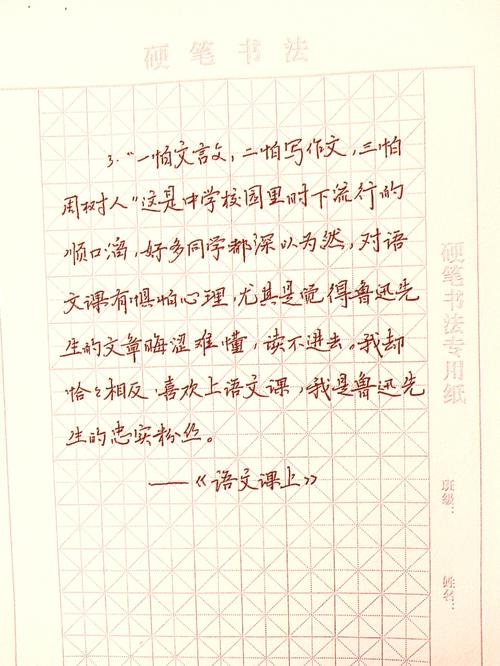 硬笔书法
3.“一怕文言文，二怕写作文，三怕
周树人”这是中学校园里时下流行的
顺口溜，好多同学都深以为然，对语
文课有惧怕心理，尤其是觉得鲁迅先
生的文章晦涩难懂，读不进去。我却
恰々相反，喜欢上语文课，我是鲁迅先
生的忠实粉丝。
——《语文课上》
硬笔书法专用纸
班级：
姓名：